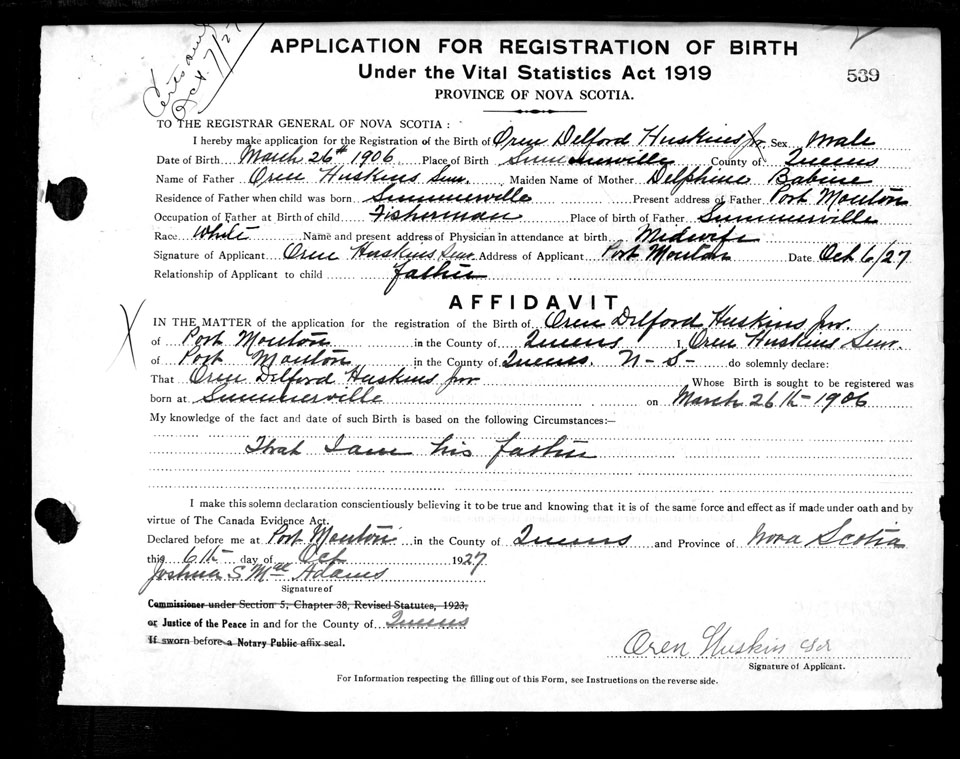 Certs and
Oct. 7/27
APPLICATION FOR REGISTRATION OF BIRTH
Under the Vital Statistics Act 1919
539
PROVINCE OF NOVA SCOTIA.
TO THE REGISTRAR GENERAL OF NOVA SCOTIA :
I hereby make application for the Registration of the Birth of Oren Delford Huskins Jr. Sex Male
Date of Birth March 26th 1906 Place of Birth Summerville County of Queens
Name of Father Oren Huskins Senr. Maiden Name of Mother Delphine Babine
Residence of Father when child was born Summerville Present address of Father Port Mouton
Occupation of Father at Birth of child Fisherman Place of birth of Father Summerville
Race White Name and present address of Physician in attendance at birth Midwife
Signature of Applicant Oren Huskins Senr. Address of Applicant Port Mouton Date Oct 6/27
Relationship of Applicant to child father
AFFIDAVIT
X
IN THE MATTER of the application for the registration of the Birth of Oren Delford Huskins Jnr.
of Port Mouton in the County of Queens I, Oren Huskins Senr.
of Port Mouton in the County of Queens. N-S- do solemnly declare:
That Oren Delford Huskins Jnr Whose Birth is sought to be registered was
born at Summerville on March 26th-1906
My knowledge of the fact and date of such Birth is based on the following Circumstances:—
That I am his father
I make this solemn declaration conscientiously believing it to be true and knowing that it is of the same force and effect as if made under oath and by
virtue of The Canada Evidence Act.
Declared before me at Port Mouton in the County of Queens and Province of Nova Scotia
this 6th day of Oct 1927
Joshua S Mc Adams
Signature of
Commissioner under Section 5, Chapter 38, Revised Statutes, 1923,
or Justice of the Peace in and for the County of Queens
If sworn before a Notary Public affix seal.
Oren Huskin Sr
Signature of Applicant.
For Information respecting the filling out of this Form, see Instructions on the reverse side.